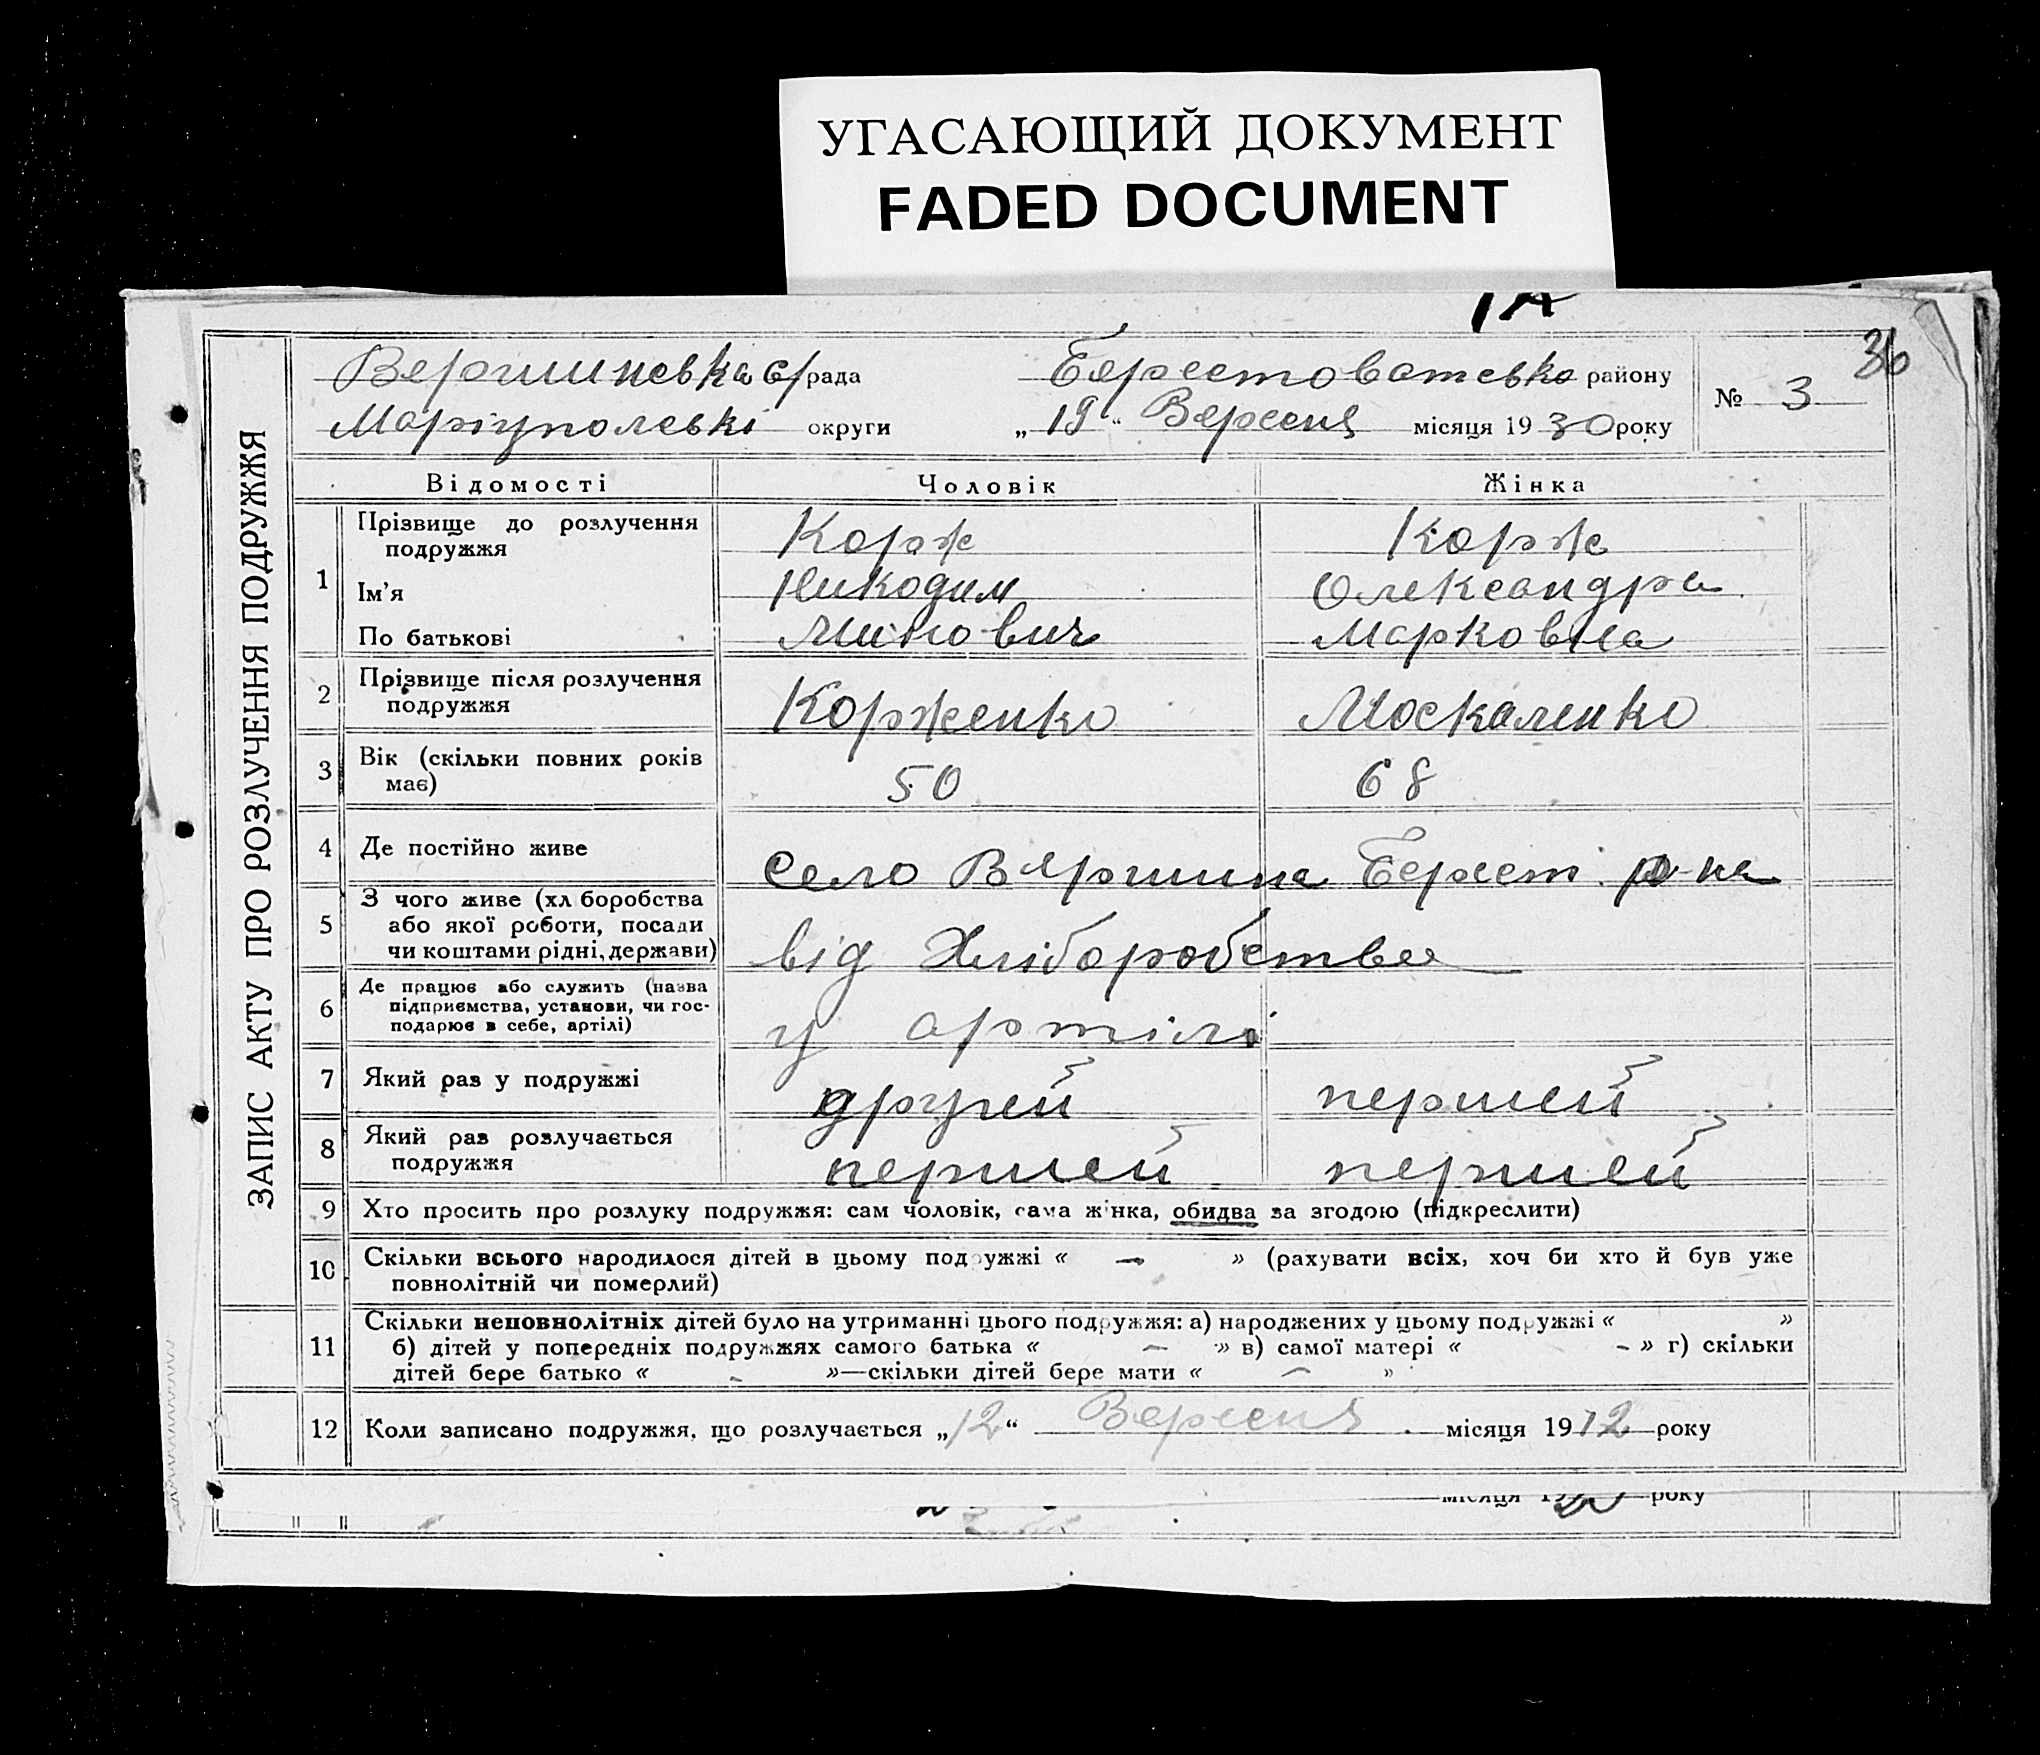 УГАСАЮЩИЙ ДОКУМЕНТ
FADED DOCUMENT
36
ЗАПИС АКТУ ПРО РОЗЛУЧЕННЯ ПОДРУЖЖЯ
Вершинська с/рада Берестоватсько району
№ 3
Маріупольскі округи „19“ Вересня місяця 1930 року
Відомості Чоловік Жінка
1 Прізвище до розлучення подружжя Корж Корж
Ім'я Никодим Олександра
По батькові Минович Марковна
2 Прізвище після розлучення подружжя Корженко Москаленко
3 Вік (скільки повних років має) 50 68
4 Де постійно живе село Вершина Берест. р-на
5 З чого живе (хліборобства або якої роботи, посади чи коштами рідні, держави) від Хліборобства
6 Де працює або служить (назва підприємства, установи, чи господарює в себе, артілі) у артілі
7 Який раз у подружжі другей першей
8 Який раз розлучається подружжя першей першей
9 Хто просить про розлуку подружжя: сам чоловік, сама жінка, обидва за згодою (підкреслити)
10 Скільки всього народилося дітей в цьому подружжі « — » (рахувати всіх, хоч би хто й був уже
повнолітній чи померлий)
11 Скільки неповнолітніх дітей було на утриманні цього подружжя: а) народжених у цьому подружжі « »
б) дітей у попередніх подружжях самого батька « — » в) самої матері « - » г) скільки
дітей бере батько « - »—скільки дітей бере мати « — »
12 Коли записано подружжя, що розлучається „12“ Вересня місяця 1912 року
місяця року